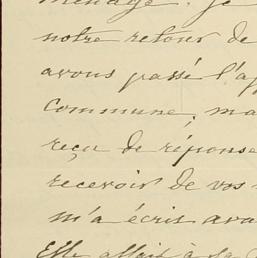 ménage. Je
notre retour de
avons passé l'ap
commune; ma
reçu de réponse
recevoir de vos
m'a écrit ava
Elle allait à sa